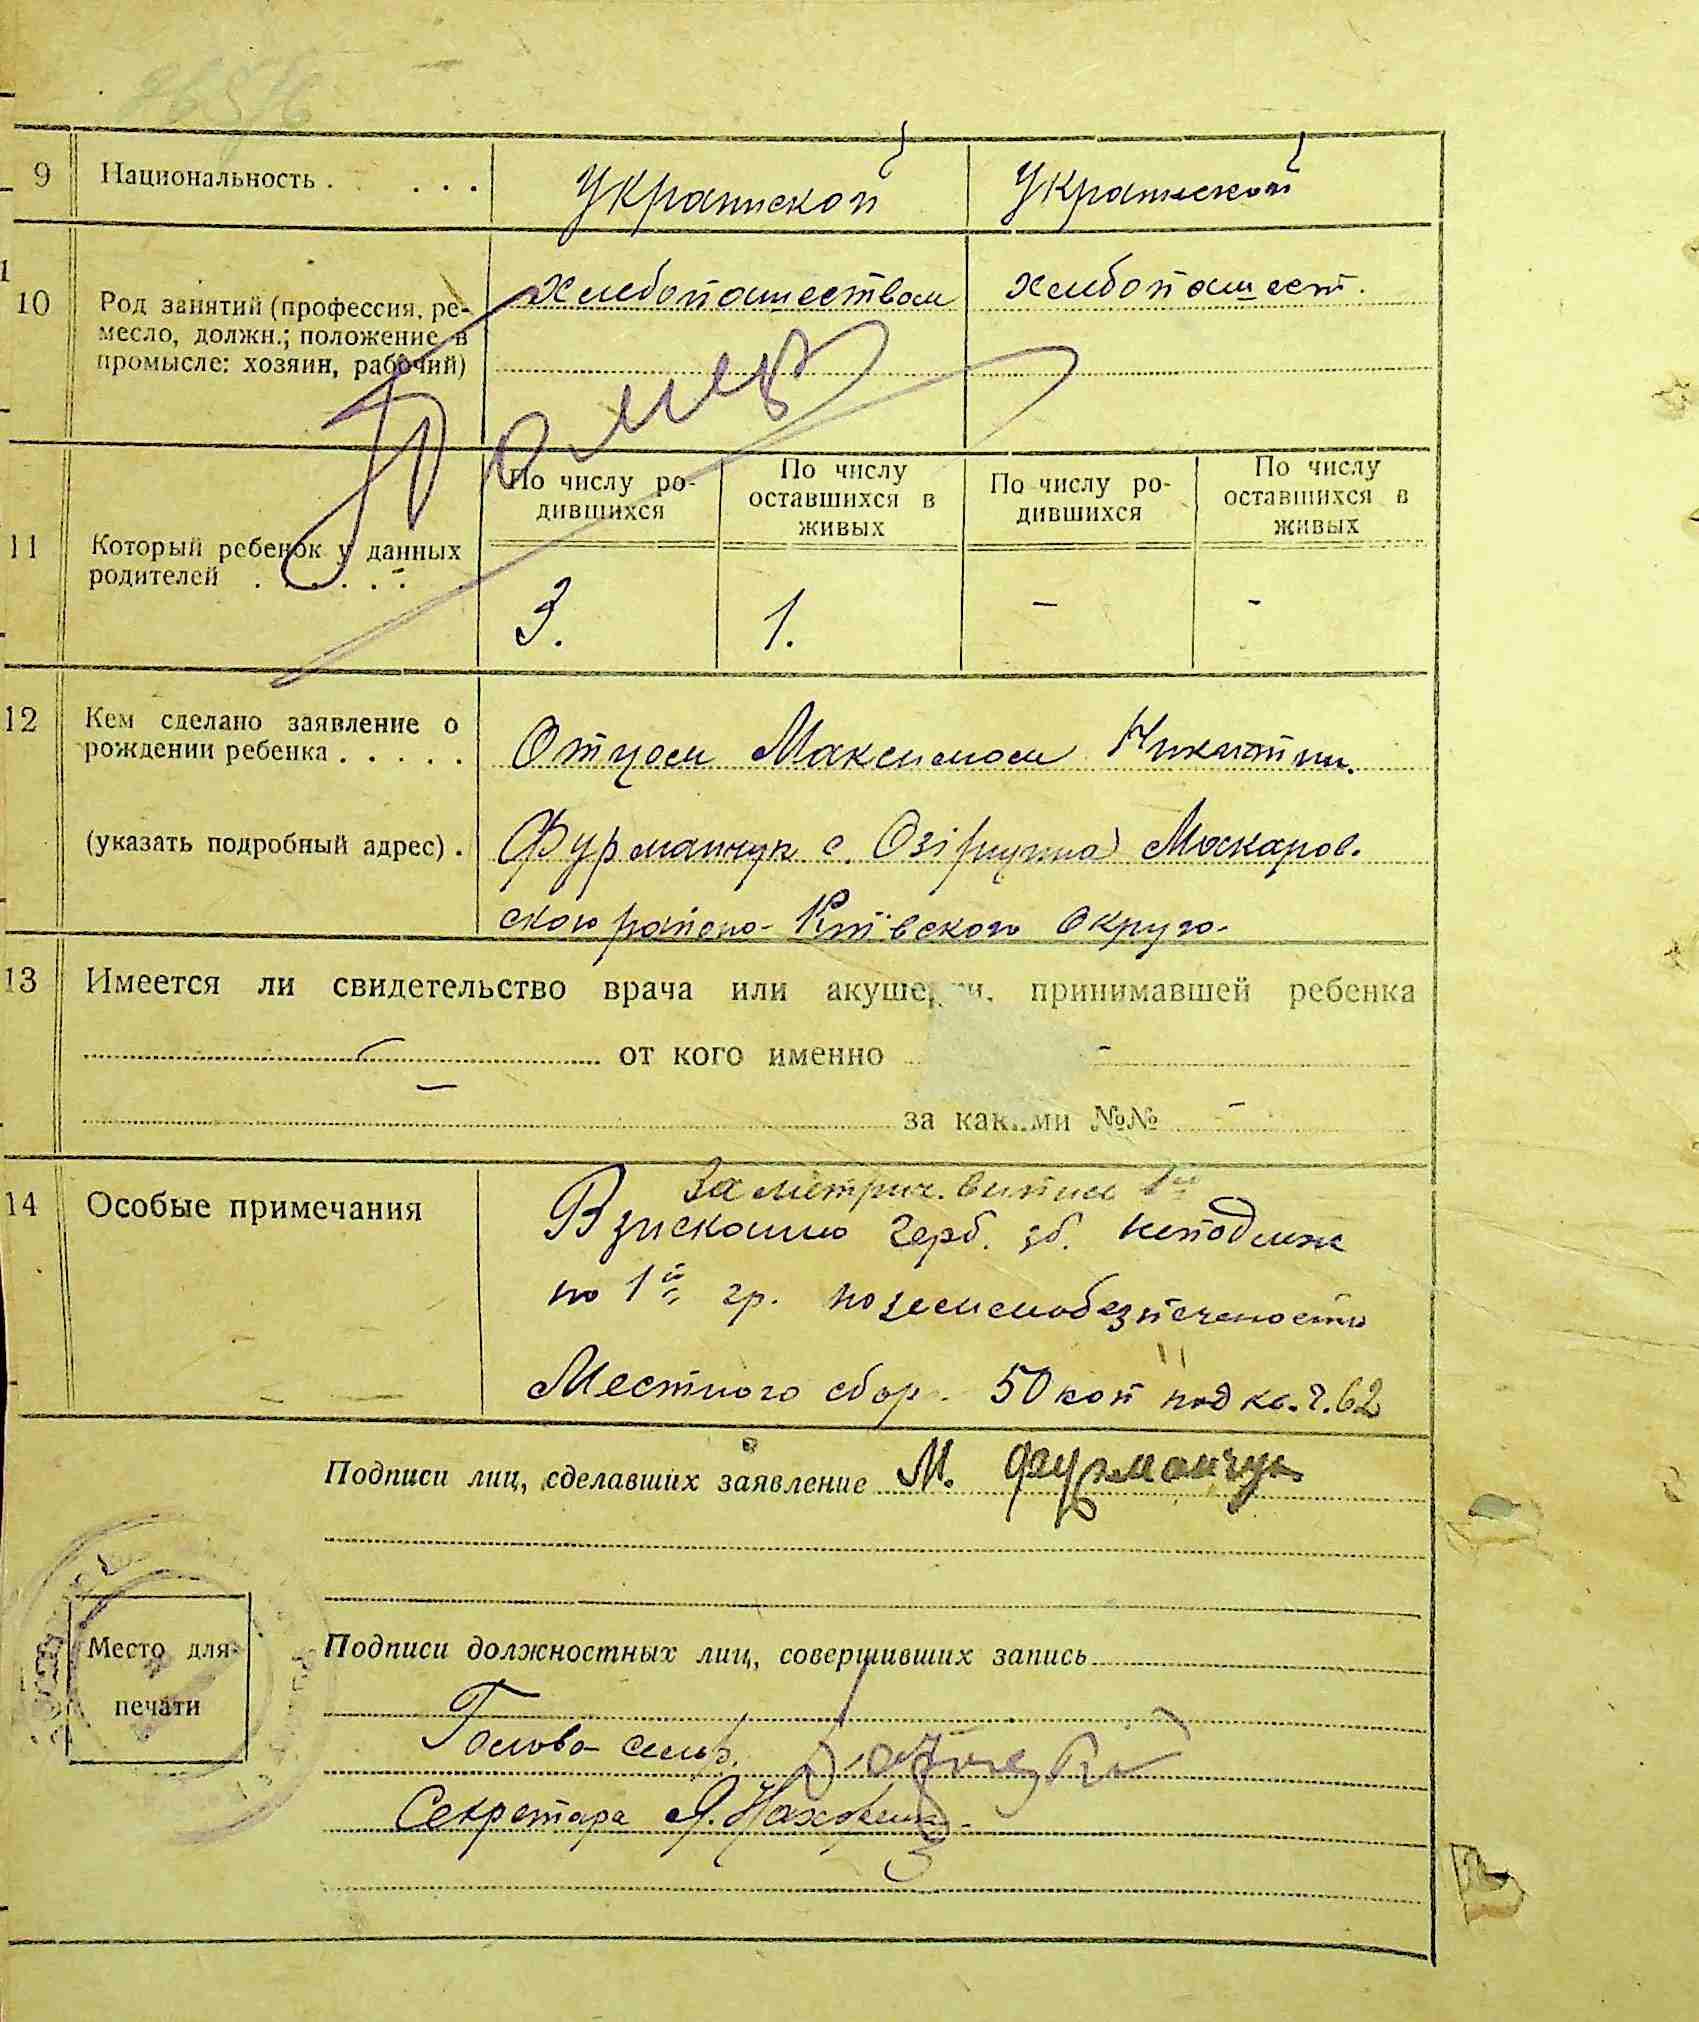 9 Национальность . . . . . Украинской Украинской
10 Род занятий (профессия, ре-
месло, должн.; положение в
промысле: хозяин, рабочий)
Хлебопашеством Хлебопашест.
11 Который ребенок у данных
родителей . . . . . .
По числу ро-
дившихся
По числу
оставшихся в
живых
По числу ро-
дившихся
По числу
оставшихся в
живых
3. 1. - -
12 Кем сделано заявление о
рождении ребенка . . . . .
Отцом Максимом Никитин.
(указать подробный адрес) .
Фурманчук с. Озірщина Макаров.
ского района Киівского Округа.
13 Имеется ли свидетельство врача или акушерки, принимавшей ребенка
от кого именно -
за какими №№ -
14 Особые примечания
За метрич. випис
Взискано герб. зб. неподлеж
по 1й гр.
Местного сбор. 50 коп под кв. 62
Подписи лиц, сделавших заявление М. Фурманчук
Место для
печати
Подписи должностных лиц, совершивших запись
Голова сельр.
Секретарь